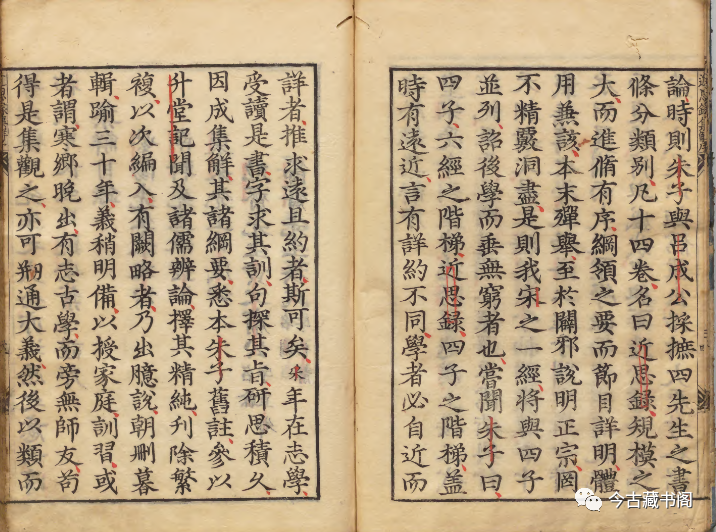 論時則朱子與呂成公採摭四先生之書
條分類別凡十四卷名曰近思錄規模之
大而進脩有序綱領之要而節目詳明體
用兼該本末殫舉至於闢邪說明正宗罔
不精覈洞盡是則我宋之一經將與四子
並列詔後學而垂無窮者也嘗聞朱子曰
四子六經之階梯近思錄四子之階梯蓋
時有遠近言有詳約不同學者必自近而
詳者推求遠且約者斯可矣采年在志學
受讀是書字求其訓句探其旨研思積久
因成集解其諸綱要悉本朱子舊註參以
升堂記聞及諸儒辨論擇其精純刊除繁
複以次編入有闕略者乃出臆說朝刪暮
輯踰三十年義稍明備以授家庭訓習或
者謂寒鄉晚出有志古學而旁無師友苟
得是集觀之亦可刱通大義然後以類而
今古藏书阁